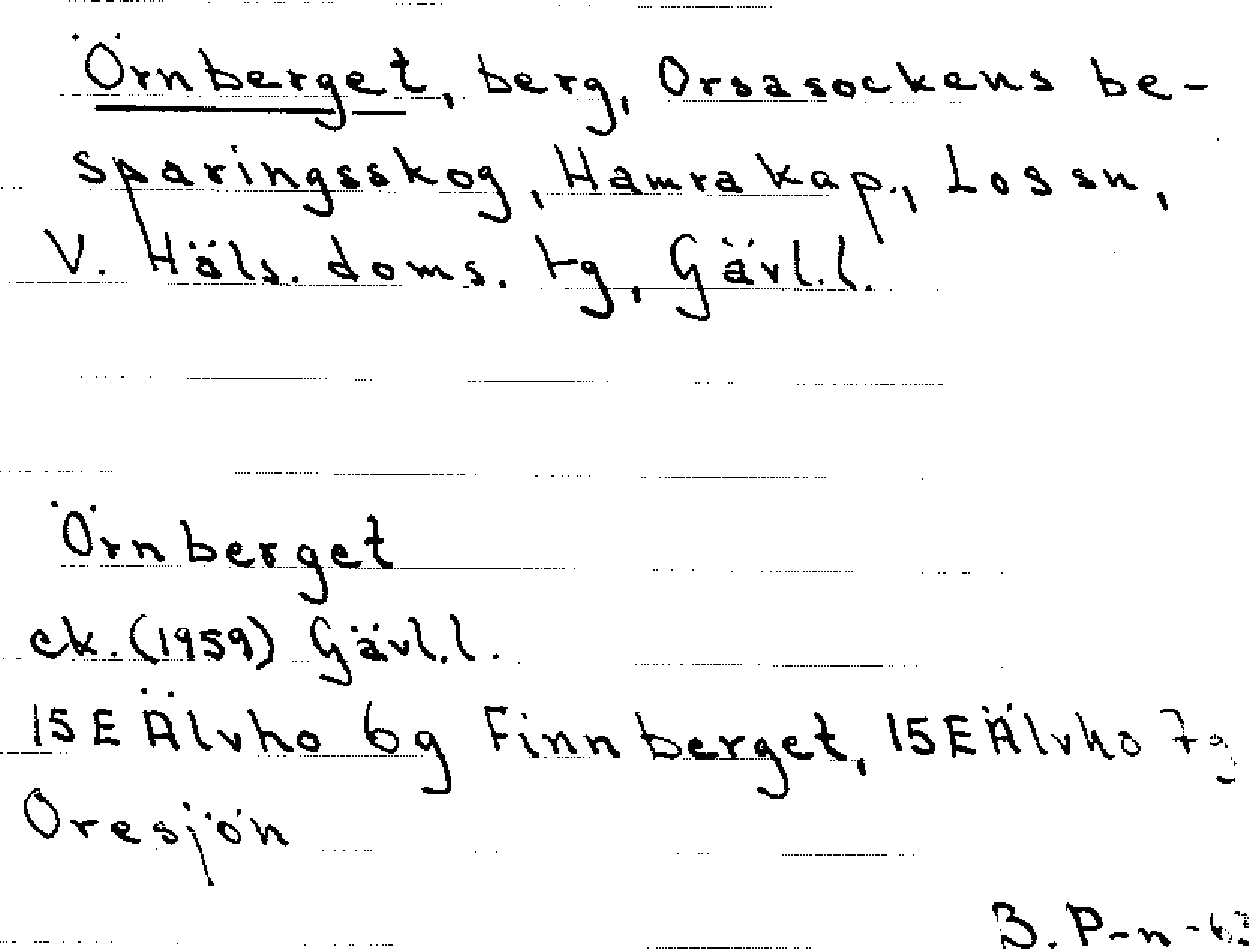 Örnberget, berg, Orsasockens be-
sparingsskog, Hamra kap., Lossn,
V. Häls. doms. tg, Gävl.l.
Örnberget
ek. (1959) Gävl.l.
15E Älvho 6g Finnberget, 15E Älvho 7g
Oresjön
B. P-n